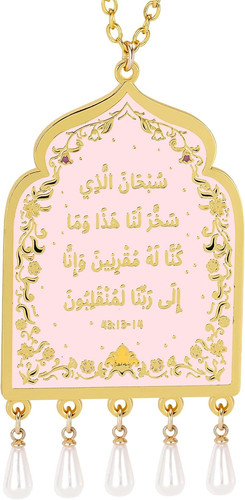 سُبْحَانَ الَّذِي
سَخَّرَ لَنَا هَٰذَا وَمَا
كُنَّا لَهُ مُقْرِنِينَ وَإِنَّا
إِلَىٰ رَبِّنَا لَمُنْقَلِبُونَ
43:13-14